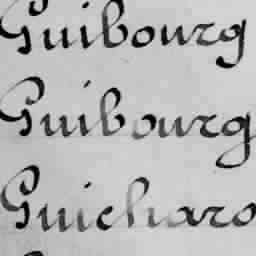 Guibourg
Guibourg
Guichard